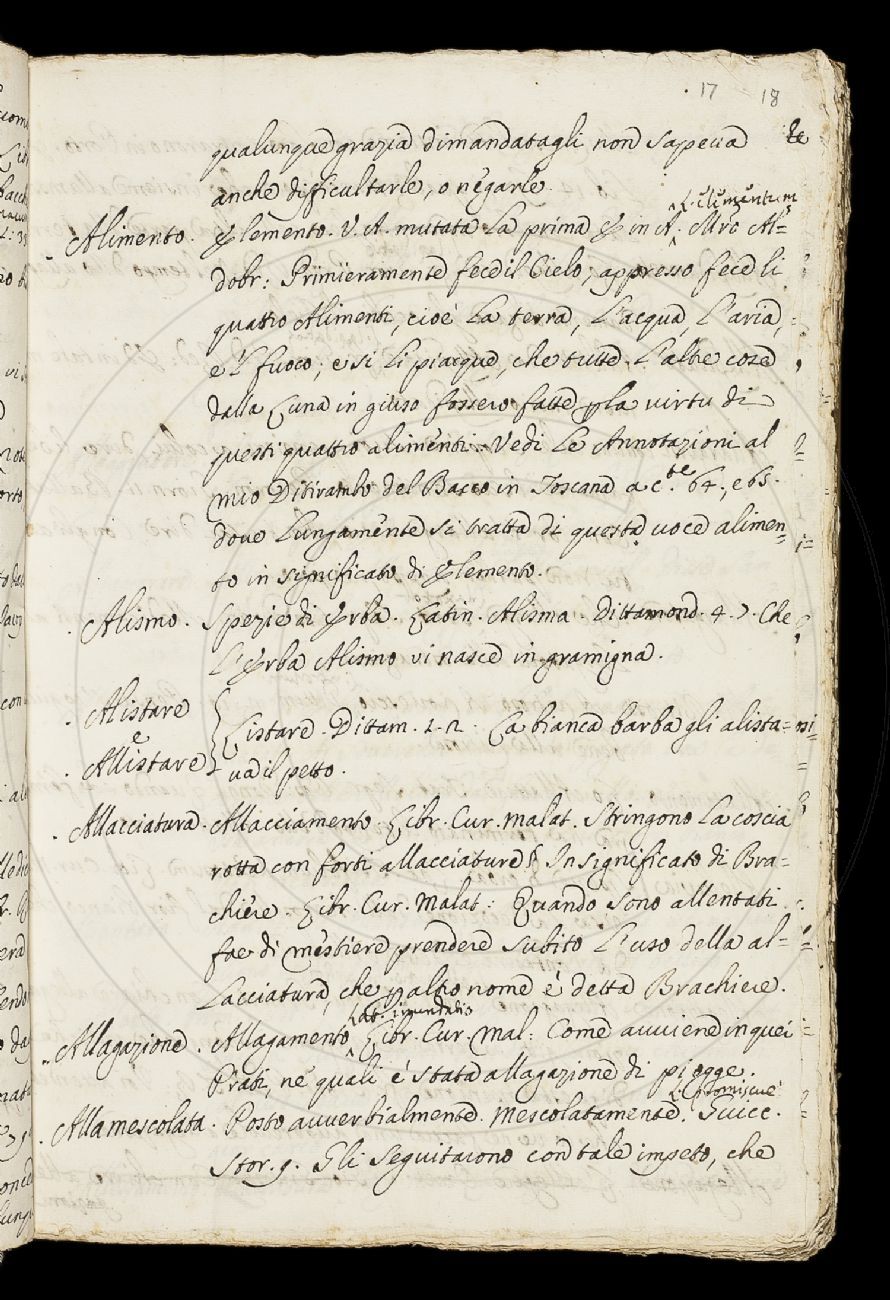 17 18
qualunque grazia dimandatagli non sapeva
anche difficultarle, o negarle.
L. elementum
Alimento. Elemento. V. A. mutata la prima E in A. Mro Al=
dobr: Primieramente fece il Cielo; appresso fece li
quattro Alimenti, cioè la terra, l'acqua, l'aria,
e 'l fuoco; e sì li piacque, che tutte l'altre cose
dalla Luna in giuso fossero fatte p la virtu di
questi quattro alimenti. Vedi le Annotazioni al
mio Ditirambo del Bacco in Toscana a c.te 64., e 65.
dove lungamente si tratta di questa voce alimen=
to in significato di Elemento.
Alismo. Spezie di Erba. Latin. Alisma. Dittamond. 4. 7. Che
l'Erba Alismo vi nasce in gramigna.
Alistare
e
Allistare
Listare. Dittam. 1. 2. La bianca barba gli alista=
va il petto.
Allacciatura. Allacciamento. Libr. Cur. Malat. Stringono la coscia
rotta con forti allacciature § In significato di Bra=
chiere. Libr. Cur. Malat.: Quando sono allentati
fae di mestiere prendere subito l'uso della al=
lacciatura, che p altro nome è detta Brachiere.
Lat. inundatio
Allagazione. Allagamento. Libr. Cur. Mal: Come avviene in quei
Prati, ne quali è stata allagazione di piogge.
L. promiscue
Alla mescolata. Posto avverbialmente. Mescolatamente. Succ.
Stor. 9. Gli seguitarono con tale impeto, che